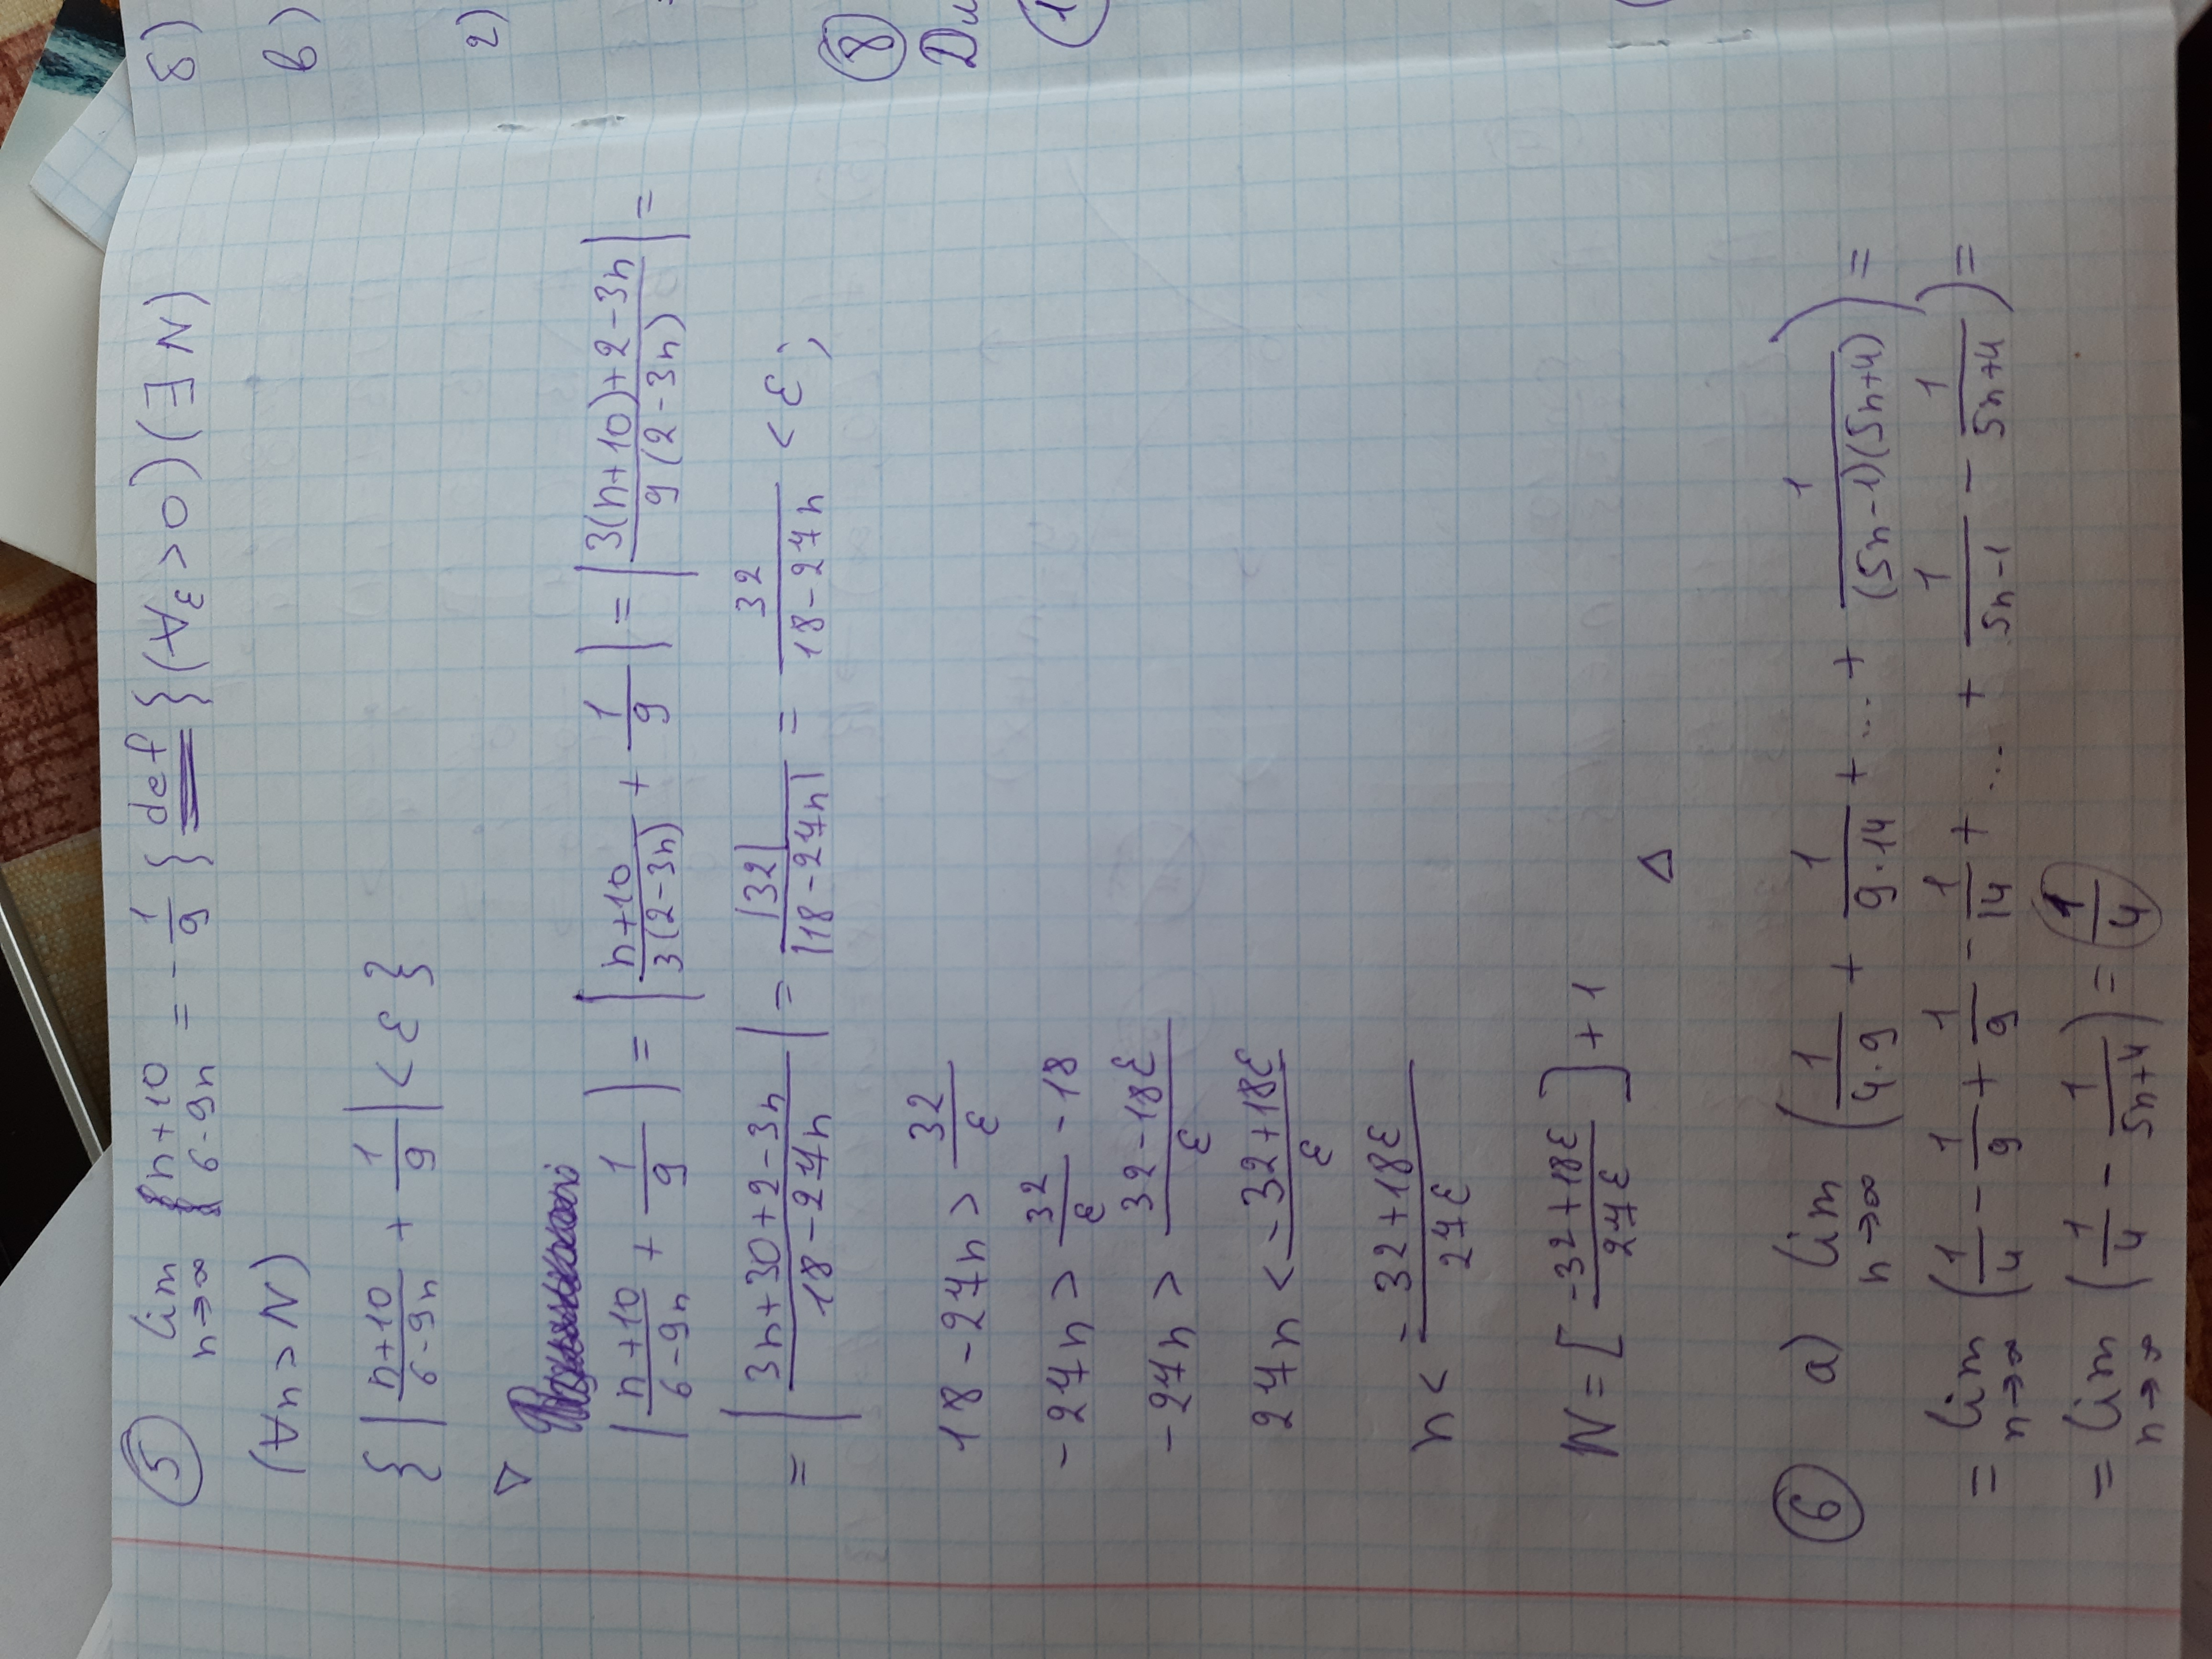 5 lim n→∞ n+10/6-9n = -1/9 {def} (∀ε>0)(∃N)
(∀n>N)
{|n+10/6-9n + 1/9| < ε}
▽
|n+10/6-9n + 1/9| = |n+10/3(2-3n) + 1/9| = |3(n+10)+2-3n/9(2-3n)| =
= |3n+30+2-3n/18-27n| = |32|/|18-27n| = 32/18-27n < ε;
18-27n > 32/ε
-27n > 32/ε - 18
-27n > 32-18ε/ε
27n < -32+18ε/ε
n < -32+18ε/27ε
N = [-32+18ε/27ε] + 1
△
6 а) lim n→∞ (1/4·9 + 1/9·14 + ... + 1/(5n-1)(5n+4)) =
= lim n→∞ (1/4 - 1/9 + 1/9 - 1/14 + ... + 1/5n-1 - 1/5n+4) =
= lim n→∞ (1/4 - 1/5n+4) = 1/4
б)
в)
г)
8
1